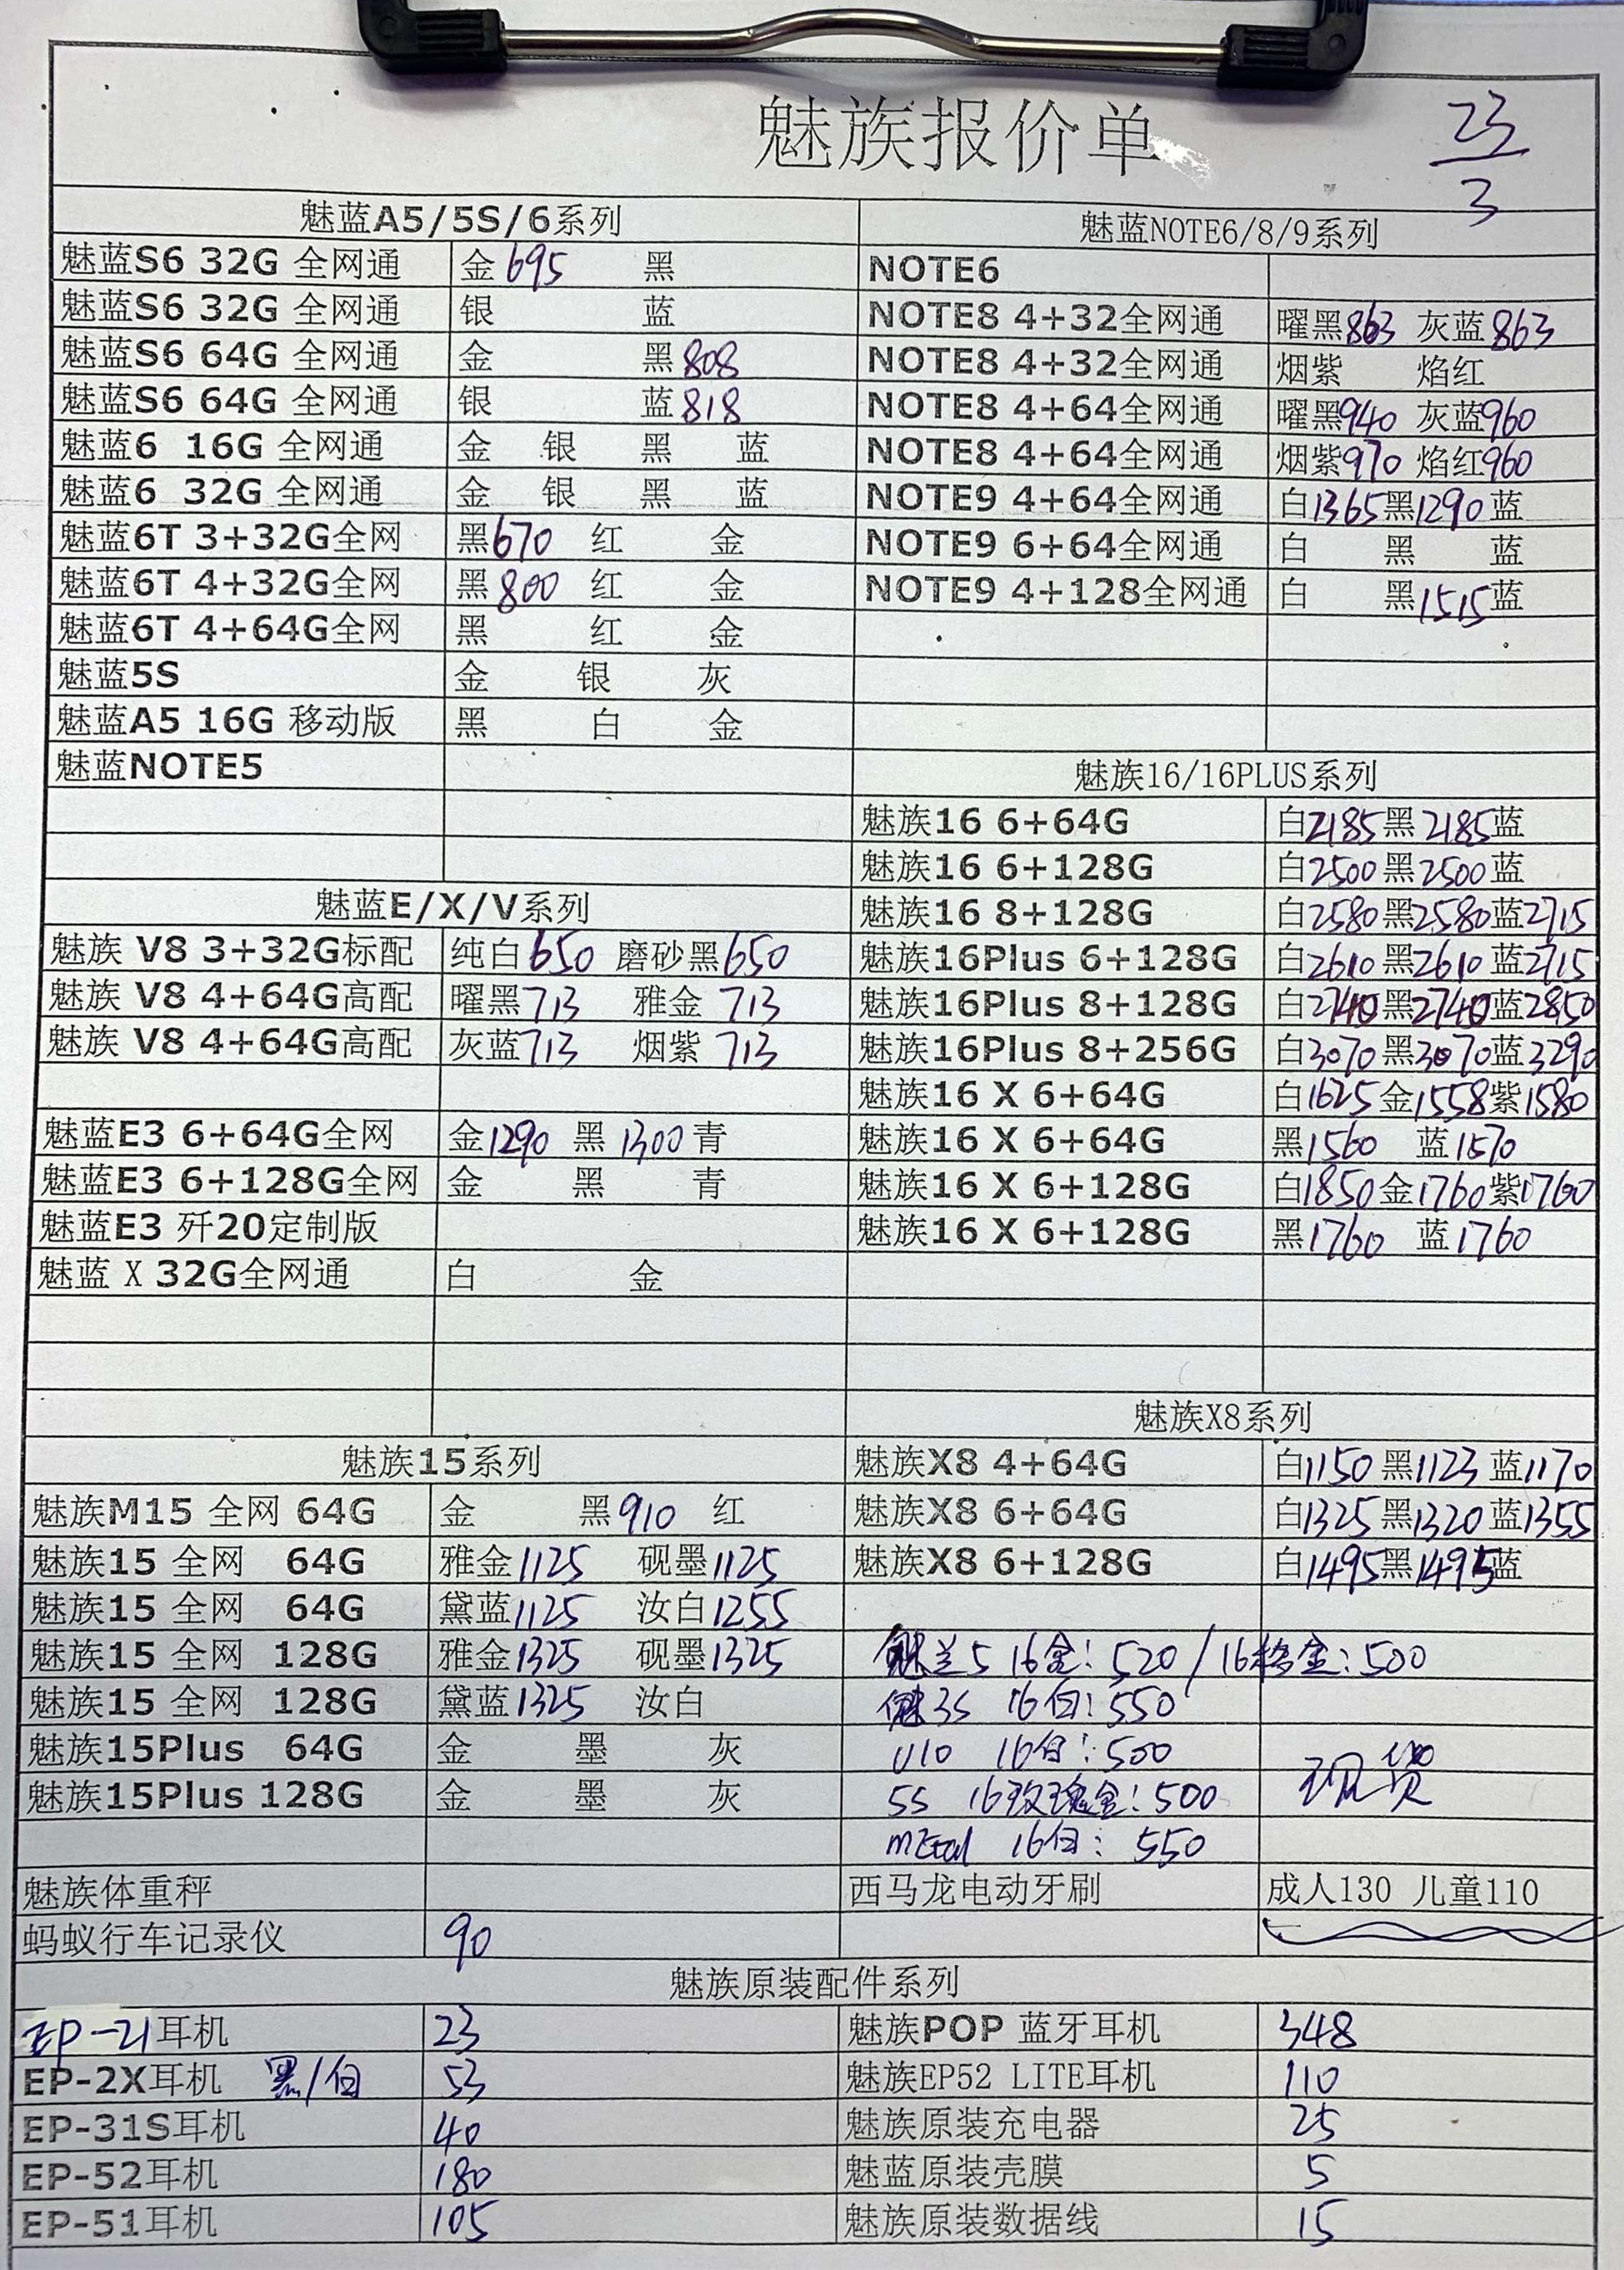 魅族报价单
23
3
魅蓝A5/5S/6系列
魅蓝S6 32G 全网通 金695 黑
魅蓝S6 32G 全网通 银 蓝
魅蓝S6 64G 全网通 金 黑808
魅蓝S6 64G 全网通 银 蓝818
魅蓝6 16G 全网通 金 银 黑 蓝
魅蓝6 32G 全网通 金 银 黑 蓝
魅蓝6T 3+32G全网 黑670 红 金
魅蓝6T 4+32G全网 黑800 红 金
魅蓝6T 4+64G全网 黑 红 金
魅蓝5S 金 银 灰
魅蓝A5 16G 移动版 黑 白 金
魅蓝NOTE5
魅蓝E/X/V系列
魅族 V8 3+32G标配 纯白650 磨砂黑650
魅族 V8 4+64G高配 曜黑713 雅金 713
魅族 V8 4+64G高配 灰蓝713 烟紫 713
魅蓝E3 6+64G全网 金1290 黑 1300 青
魅蓝E3 6+128G全网 金 黑 青
魅蓝E3 歼20定制版
魅蓝 X 32G全网通 白 金
魅族15系列
魅族M15 全网 64G 金 黑910 红
魅族15 全网 64G 雅金1125 砚墨1125
魅族15 全网 64G 黛蓝1125 汝白1255
魅族15 全网 128G 雅金1325 砚墨1325
魅族15 全网 128G 黛蓝1325 汝白
魅族15Plus 64G 金 墨 灰
魅族15Plus 128G 金 墨 灰
魅族体重秤
蚂蚁行车记录仪 90
魅蓝NOTE6/8/9系列
NOTE6
NOTE8 4+32全网通 曜黑863 灰蓝863
NOTE8 4+32全网通 烟紫 焰红
NOTE8 4+64全网通 曜黑940 灰蓝960
NOTE8 4+64全网通 烟紫970 焰红960
NOTE9 4+64全网通 白1365黑1290 蓝
NOTE9 6+64全网通 白 黑 蓝
NOTE9 4+128全网通 白 黑1515蓝
魅族16/16PLUS系列
魅族16 6+64G 白2185黑2185蓝
魅族16 6+128G 白2500黑2500蓝
魅族16 8+128G 白2580黑2580蓝2715
魅族16Plus 6+128G 白2610黑2610 蓝2715
魅族16Plus 8+128G 白2740黑2740蓝2850
魅族16Plus 8+256G 白3070黑3070蓝3290
魅族16 X 6+64G 白1625金1558紫1580
魅族16 X 6+64G 黑1560 蓝1570
魅族16 X 6+128G 白1850金1760紫1760
魅族16 X 6+128G 黑1760 蓝1760
魅族X8系列
魅族X8 4+64G 白1150 黑1123 蓝1170
魅族X8 6+64G 白1325黑1320蓝1355
魅族X8 6+128G 白1495黑1495蓝
魅兰5 16金：520 / 16金：500
魅3S 16白：550
U10 16白：500
5S 16玫瑰金：500
metal 16白：550
现货
西马龙电动牙刷 成人130 儿童110
魅族原装配件系列
EP-21耳机 23 魅族POP 蓝牙耳机 348
EP-2X耳机 黑/白 53 魅族EP52 LITE耳机 110
EP-31S耳机 40 魅族原装充电器 25
EP-52耳机 180 魅蓝原装壳膜 5
EP-51耳机 105 魅族原装数据线 15